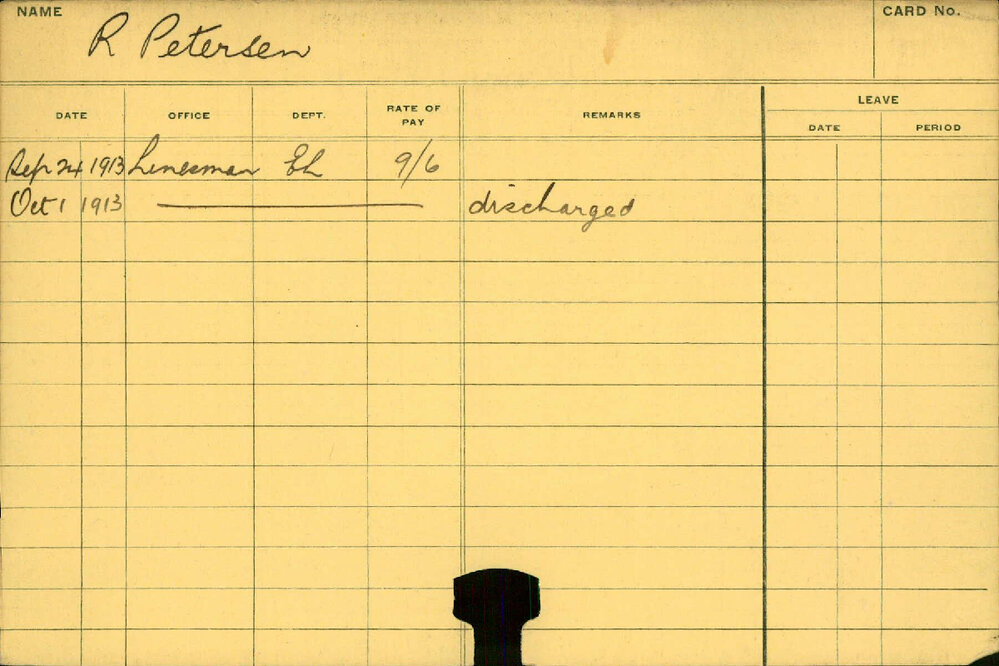 NAME
R Petersen
CARD No.
DATE OFFICE DEPT. RATE OF PAY REMARKS LEAVE
DATE PERIOD
Sep 24 1913 Linesman EL 9/6
Oct 1 1913 discharged